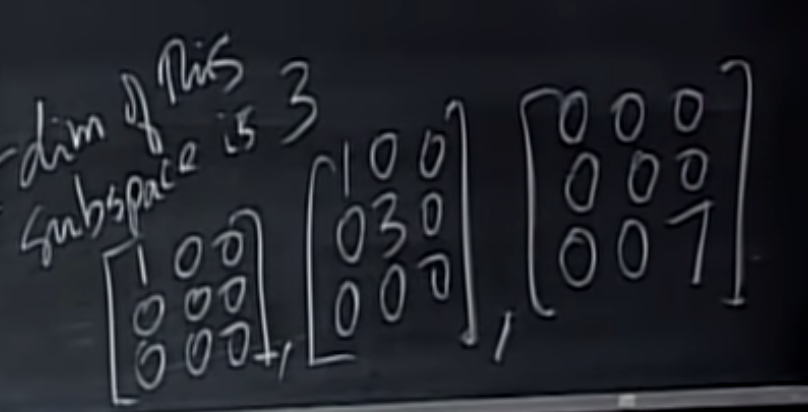 -dim of this
subspace is 3
[1 0 0
0 0 0
0 0 0],
[1 0 0
0 3 0
0 0 0],
[0 0 0
0 0 0
0 0 7]